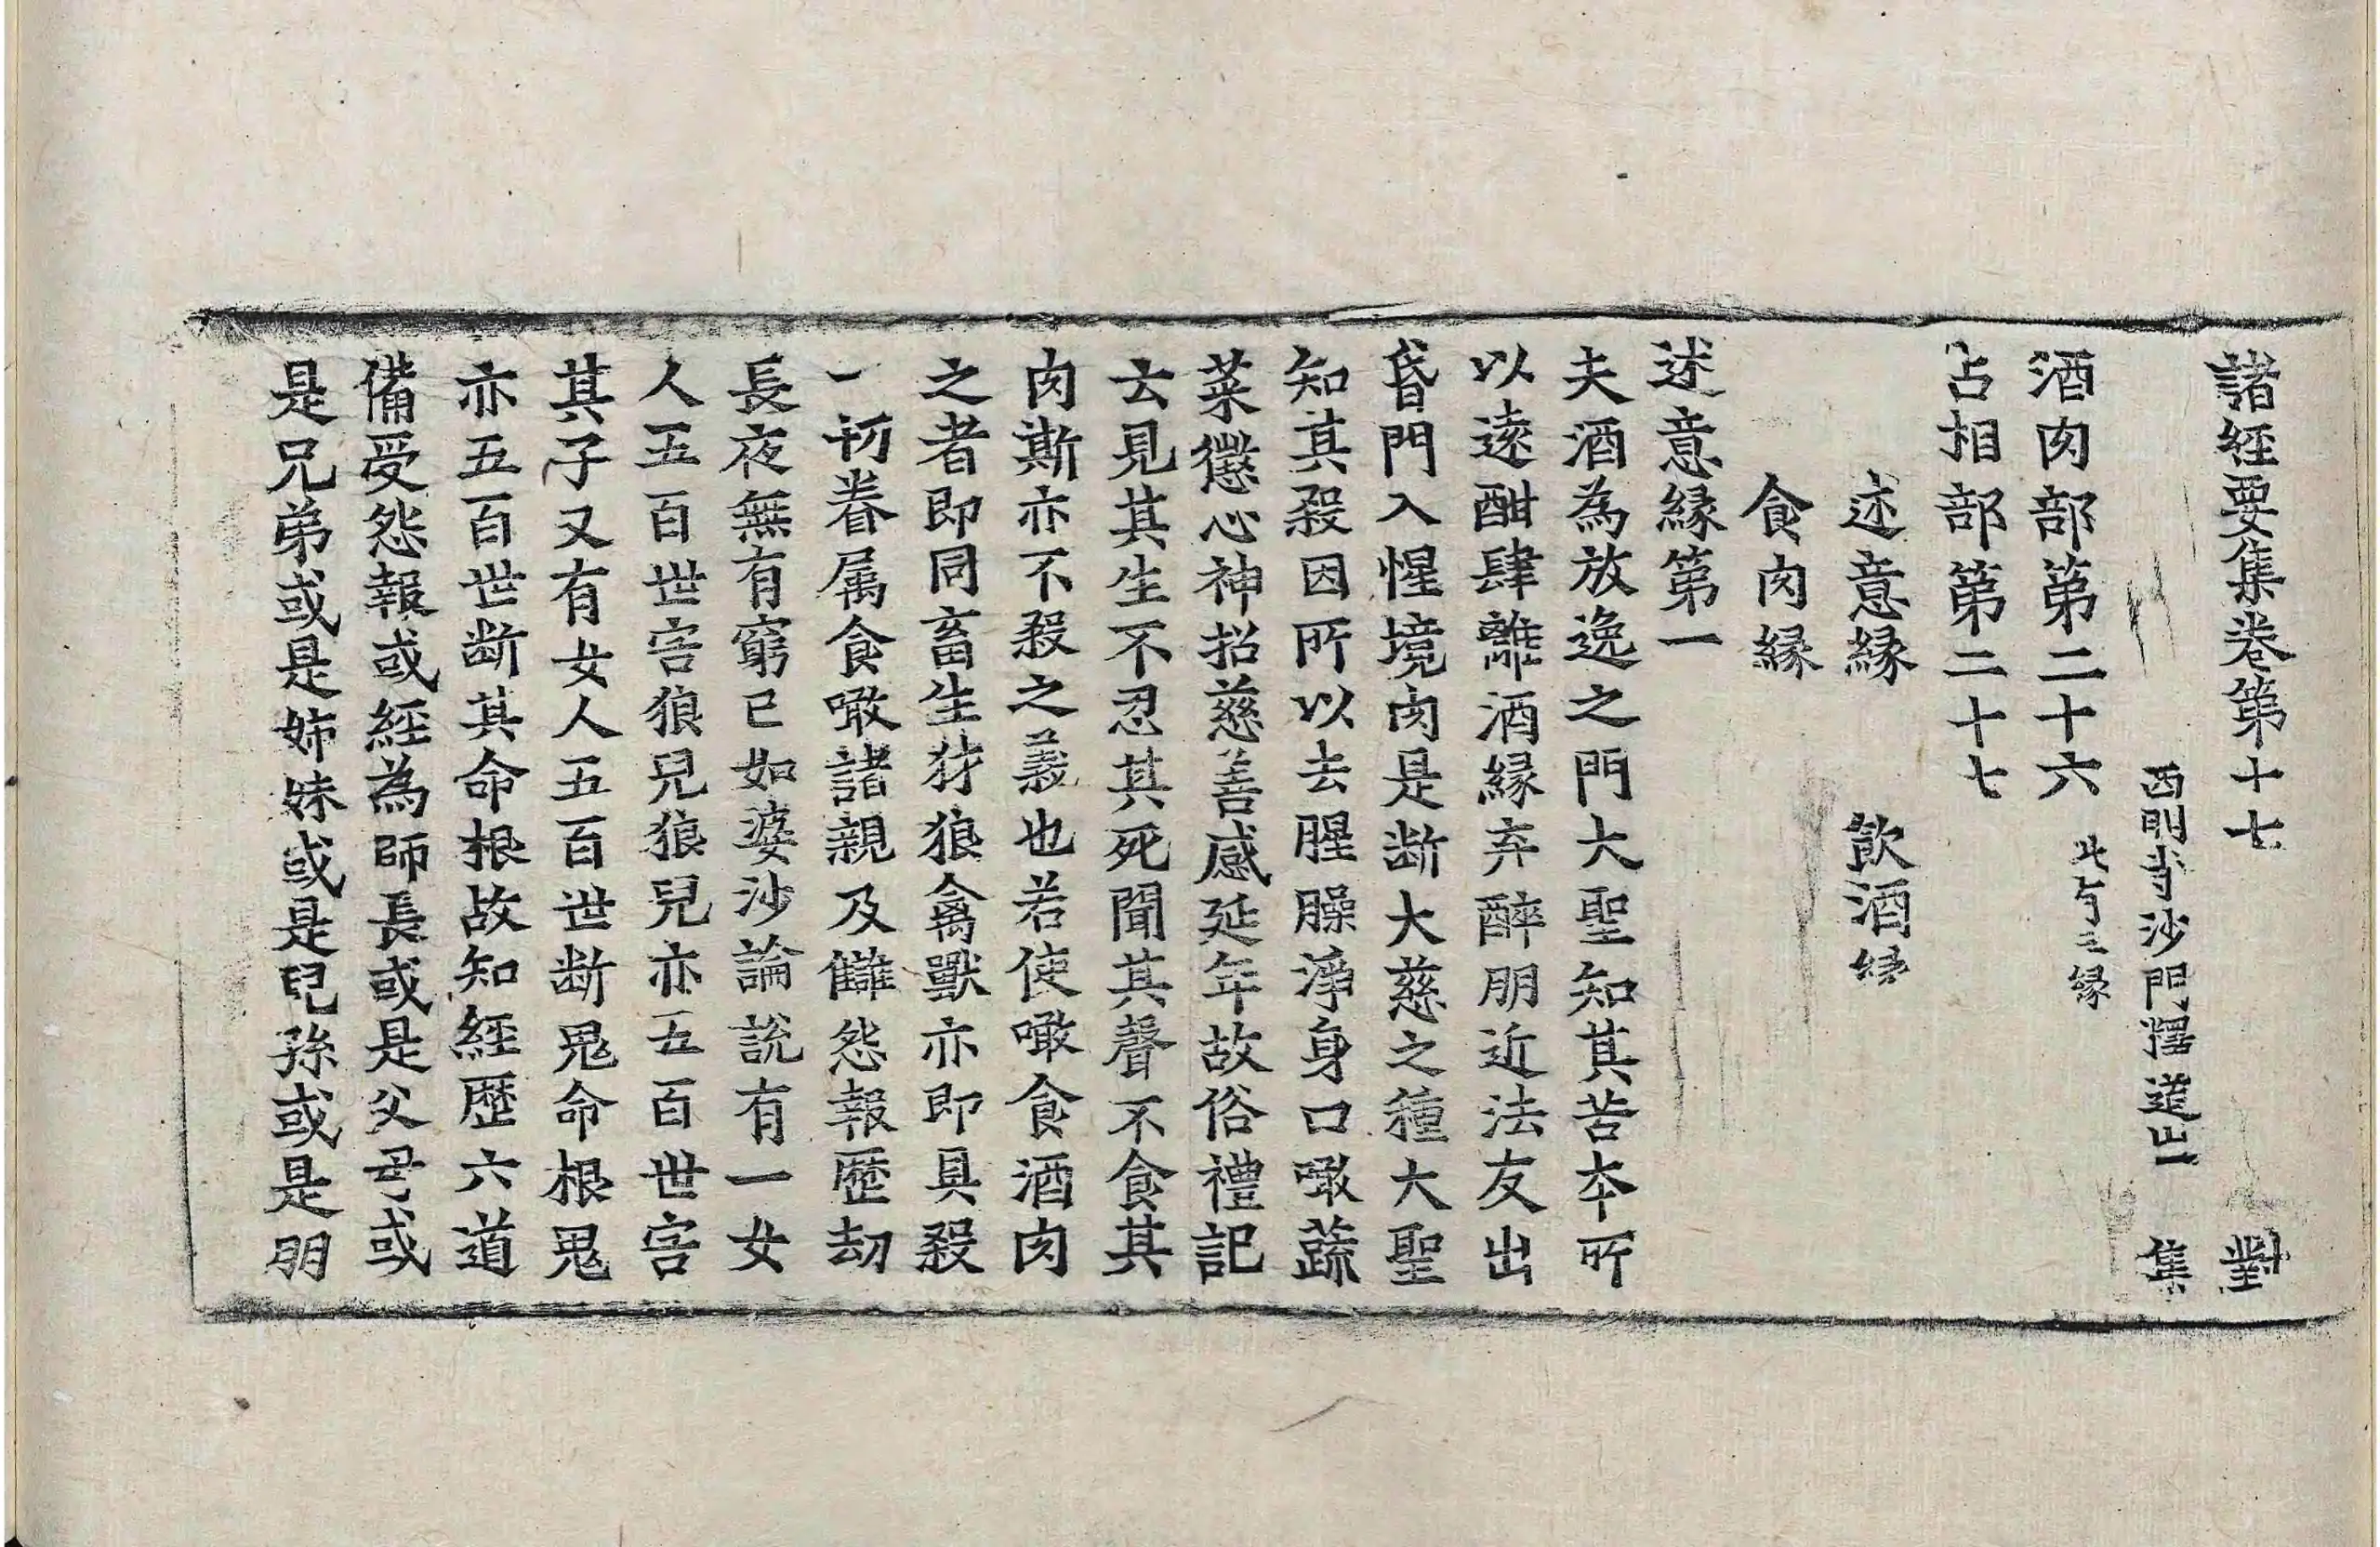 諸經要集卷第十七　對
西明寺沙門釋道世　集
酒肉部第二十六　此有三緣
占相部第二十七
述意緣　飲酒緣
食肉緣
述意緣第一
夫酒為放逸之門大聖知其苦本所
以遠酣肆離酒緣弃醉朋近法友出
昏門入惺境肉是断大慈之種大聖
知其殺因所以去腥臊淨身口噉蔬
菜懲心神招慈善感延年故俗禮記
云見其生不忍其死聞其聲不食其
肉斯亦不殺之義也若使噉食酒肉
之者即同畜生犲狼禽獸亦即具殺
一切眷属食噉諸親及讎怨報歷劫
長夜無有窮已如婆沙論說有一女
人五百世害狼兒狼兒亦五百世害
其子又有女人五百世断鬼命根鬼
亦五百世断其命根故知經歷六道
備受怨報或經為師長或是父母或
是兄弟或是姊妹或是兒孫或是朋